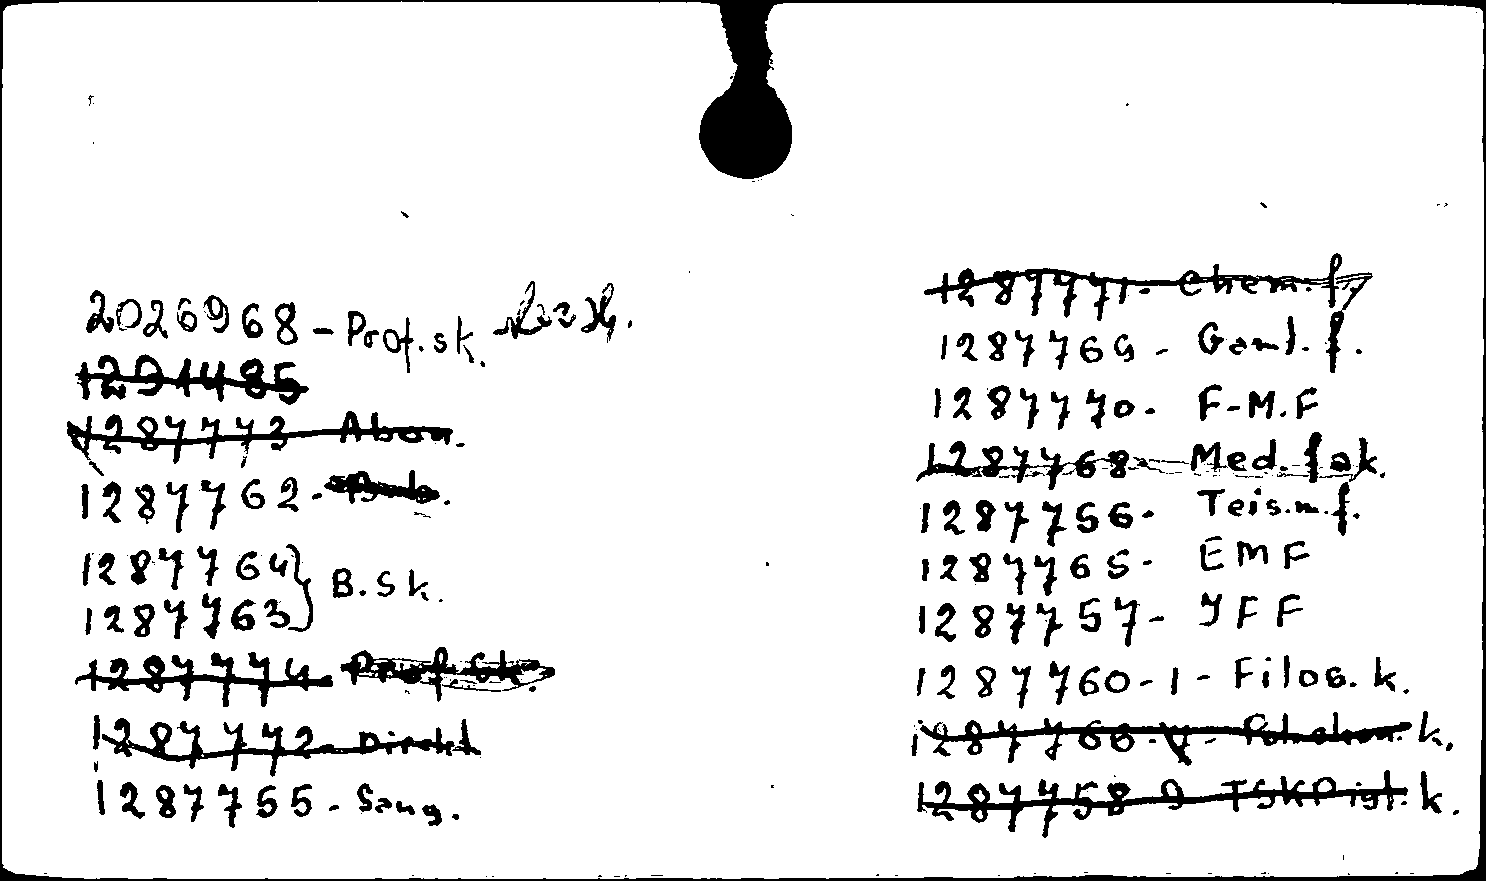 2026968 - Prof. sk.
1291485
1287773 Abon.
1287762 -
1287764 } B. Sk.
1287763
1287774 - Prof. Sk.
1287772 - Direkt
1287755 - Saug.
1287771 - Chem. f.
1287769 - Gamt. f.
1287770 - F-M.F
1287768 - Med. fak.
1287756 - Teis. m. f.
1287765 - EMF
1287757 - JFF
1287760 - 1 - Filos. k.
1287766 - k.
1287758 9 TSKP ist. k.